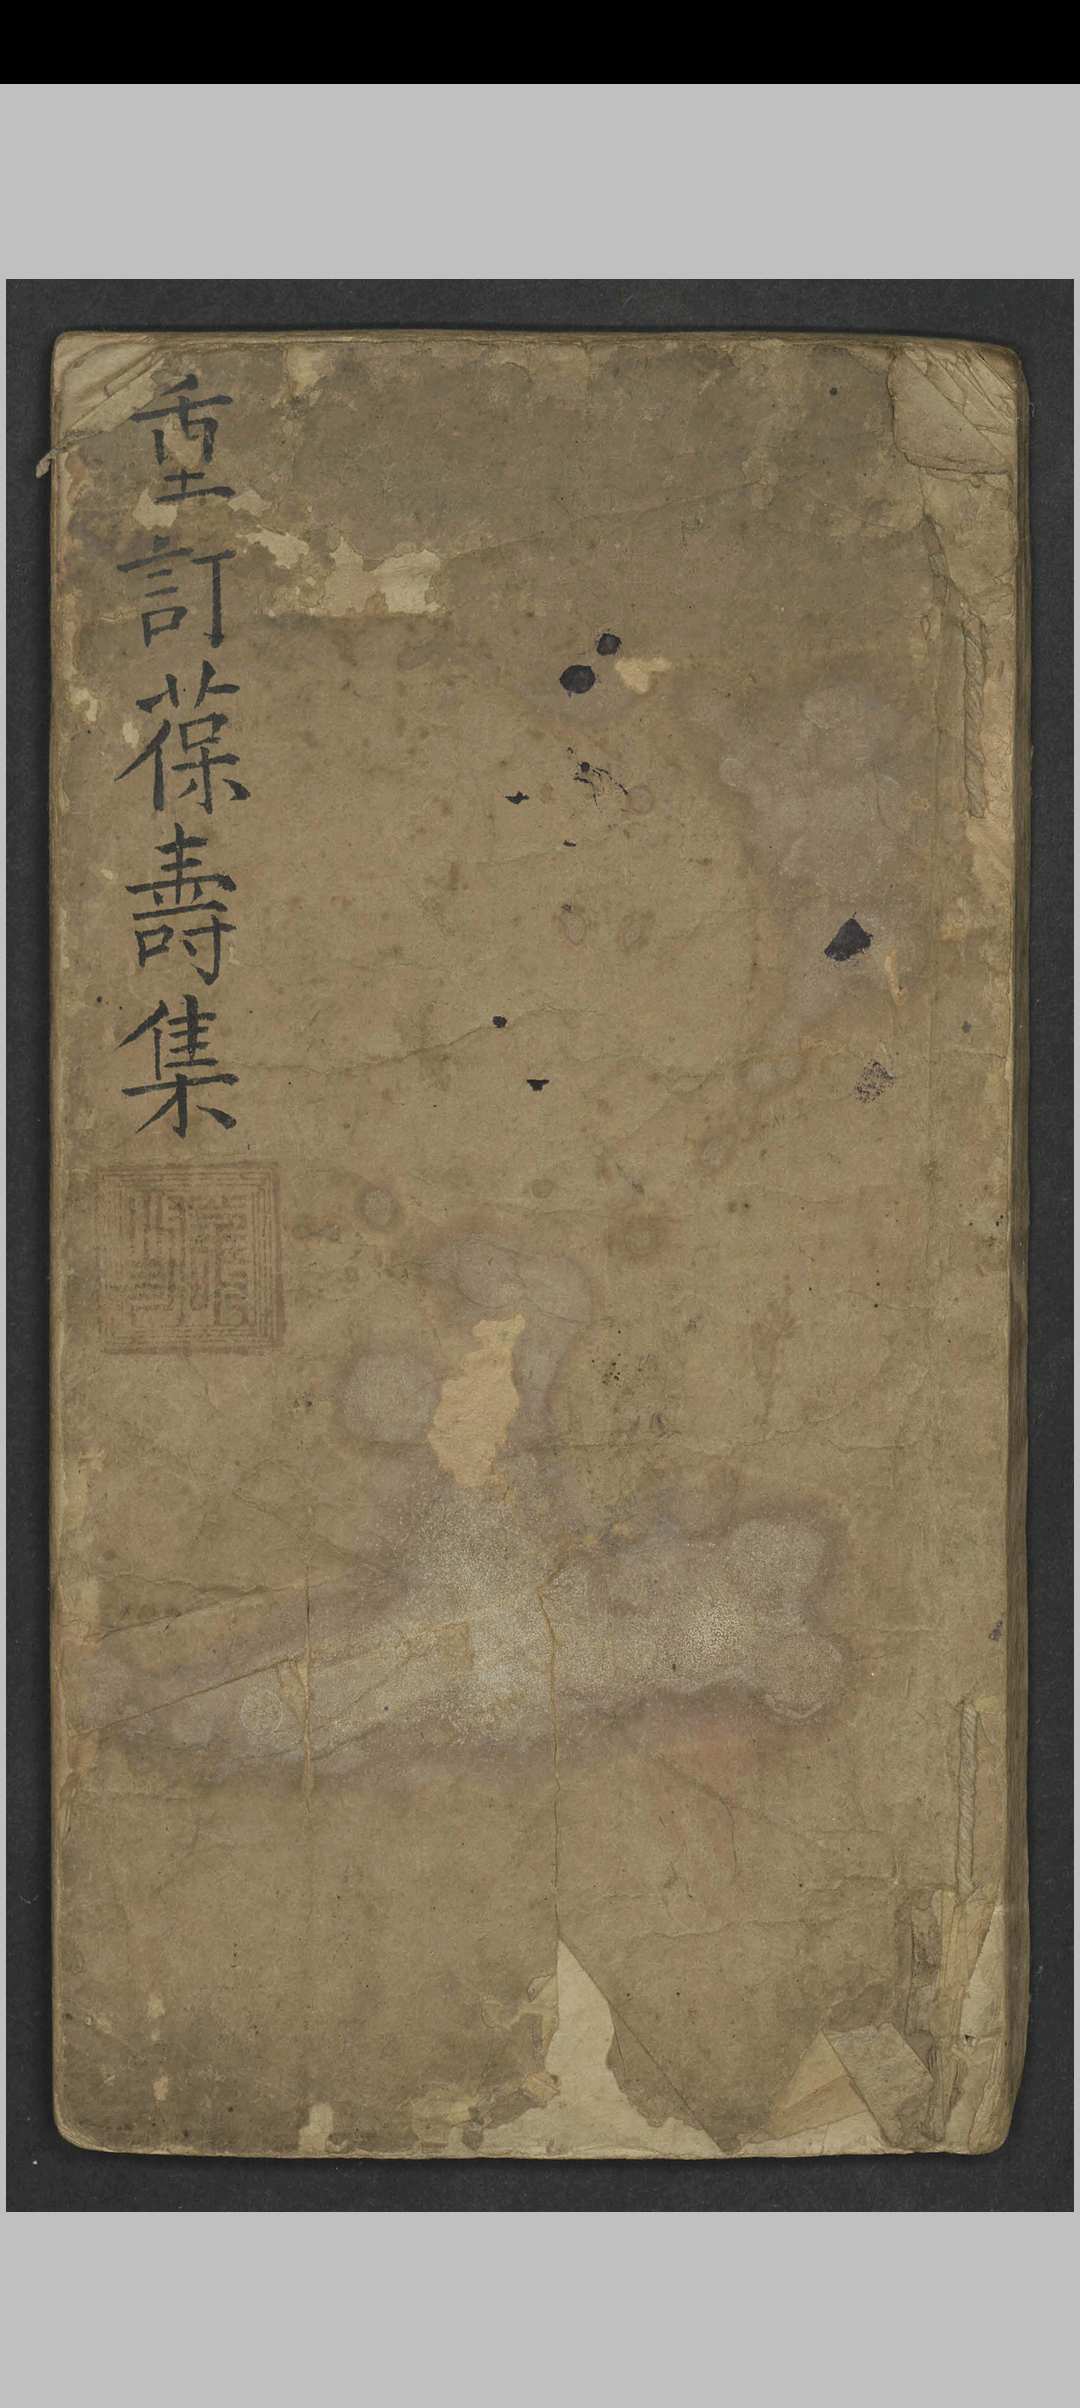 重訂葆壽集